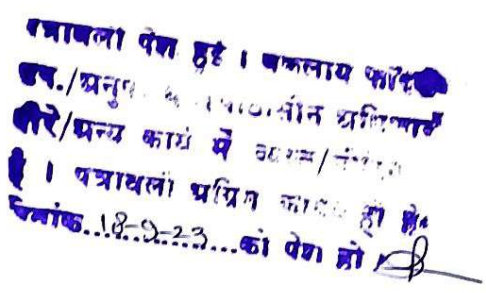 पत्रावली पेश हुई । वकलाय फरिक
उप./अनु पीठासीन अधिकारी
दौरे/अन्य कार्य में व्यस्त/
है । पत्रावली अग्रिम हो है
दिनांक..18-9-23....को पेश हो